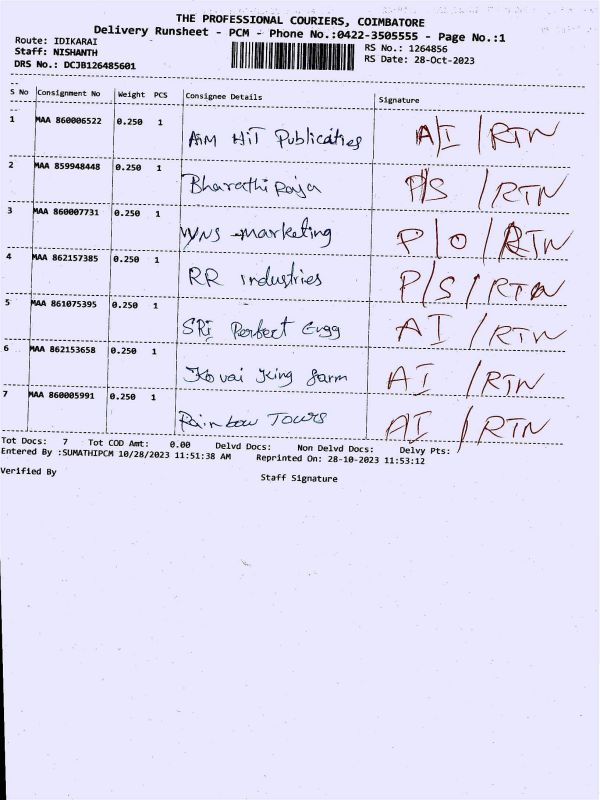 THE PROFESSIONAL COURIERS, COIMBATORE
Delivery Runsheet - PCM - Phone No.:0422-3505555 - Page No.:1
Route: IDIKARAI RS No.: 1264856
Staff: NISHANTH RS Date: 28-Oct-2023
DRS No.: DCJB126485601
S No Consignment No Weight PCS Consignee Details Signature
1 MAA 860006522 0.250 1 AIM HIT Publicaties A/I / RTN
2 MAA 859948448 0.250 1 Bharathi Raja P/S / RTN
3 MAA 860007731 0.250 1 VYNS marketing P/O / RTN
4 MAA 862157385 0.250 1 RR industries P/S / RTN
5 MAA 861075395 0.250 1 SRi Perfect Engg AI / RTN
6 MAA 862153658 0.250 1 Kovai King farm AI / RTN
7 MAA 860005991 0.250 1 Rainbow Tours AI / RTN
Tot Docs: 7 Tot COD Amt: 0.00 Delvd Docs: Non Delvd Docs: Delvy Pts:
Entered By :SUMATHIPCM 10/28/2023 11:51:38 AM Reprinted On: 28-10-2023 11:53:12
Verified By Staff Signature